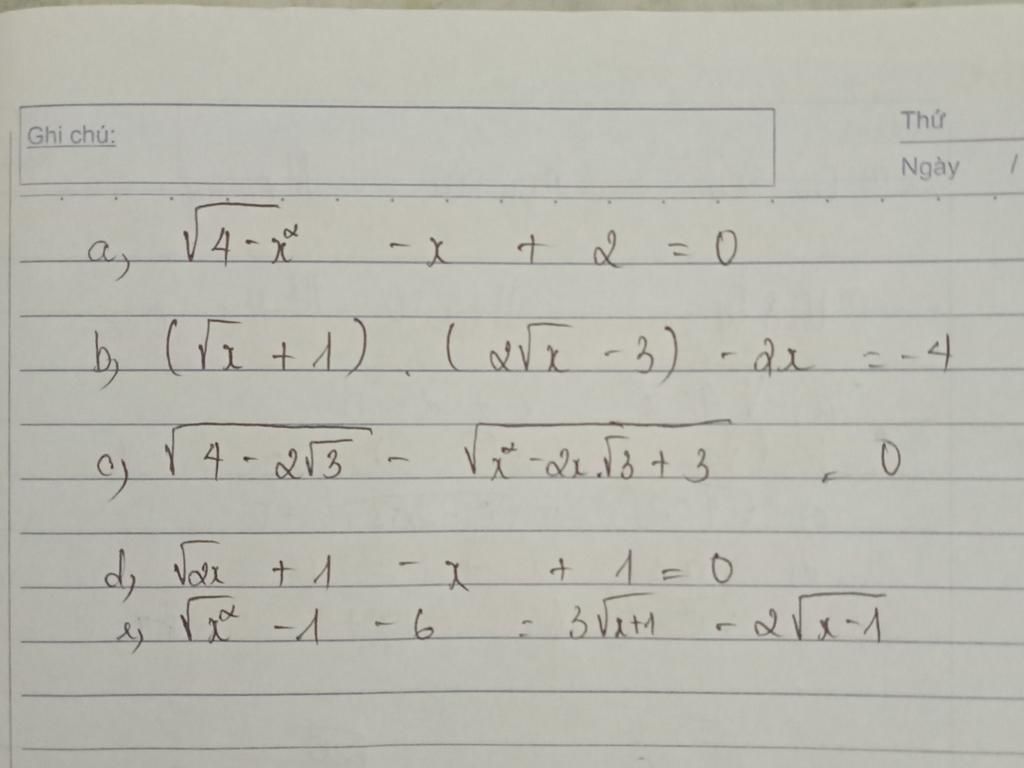 Ghi chú:
Thứ
Ngày /
a, √(4 - x²) - x + 2 = 0
b, (√x + 1) . (2√x - 3) - 2x = -4
c) √(4 - 2√3) - √(x² - 2x.√3 + 3) = 0
d, √2x + 1 - x + 1 = 0
e, √x² - 1 - 6 = 3√(x+1) - 2√(x-1)